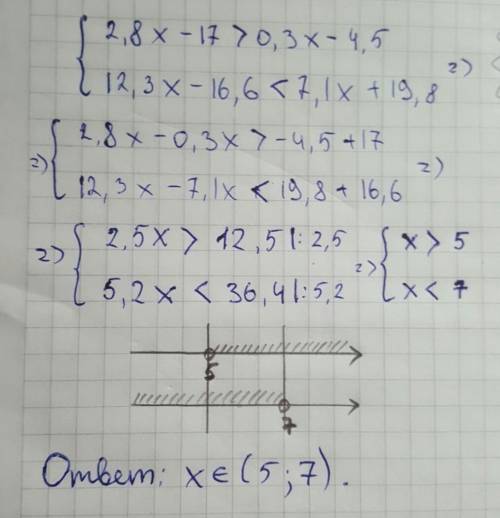 { 2,8x - 17 > 0,3x - 4,5
12,3x - 16,6 < 7,1x + 19,8 =>
=> { 2,8x - 0,3x > -4,5 + 17
12,3x - 7,1x < 19,8 + 16,6 =>
=> { 2,5x > 12,5 |: 2,5
5,2x < 36,4 |: 5,2 => { x > 5
x < 7
5
7
Ответ: x ∈ (5; 7).